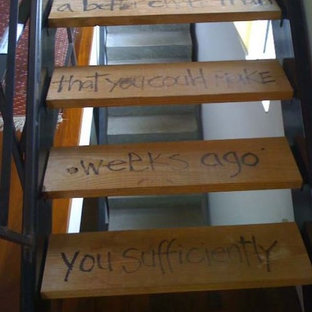 a
that you could make
.weeks ago
you sufficiently